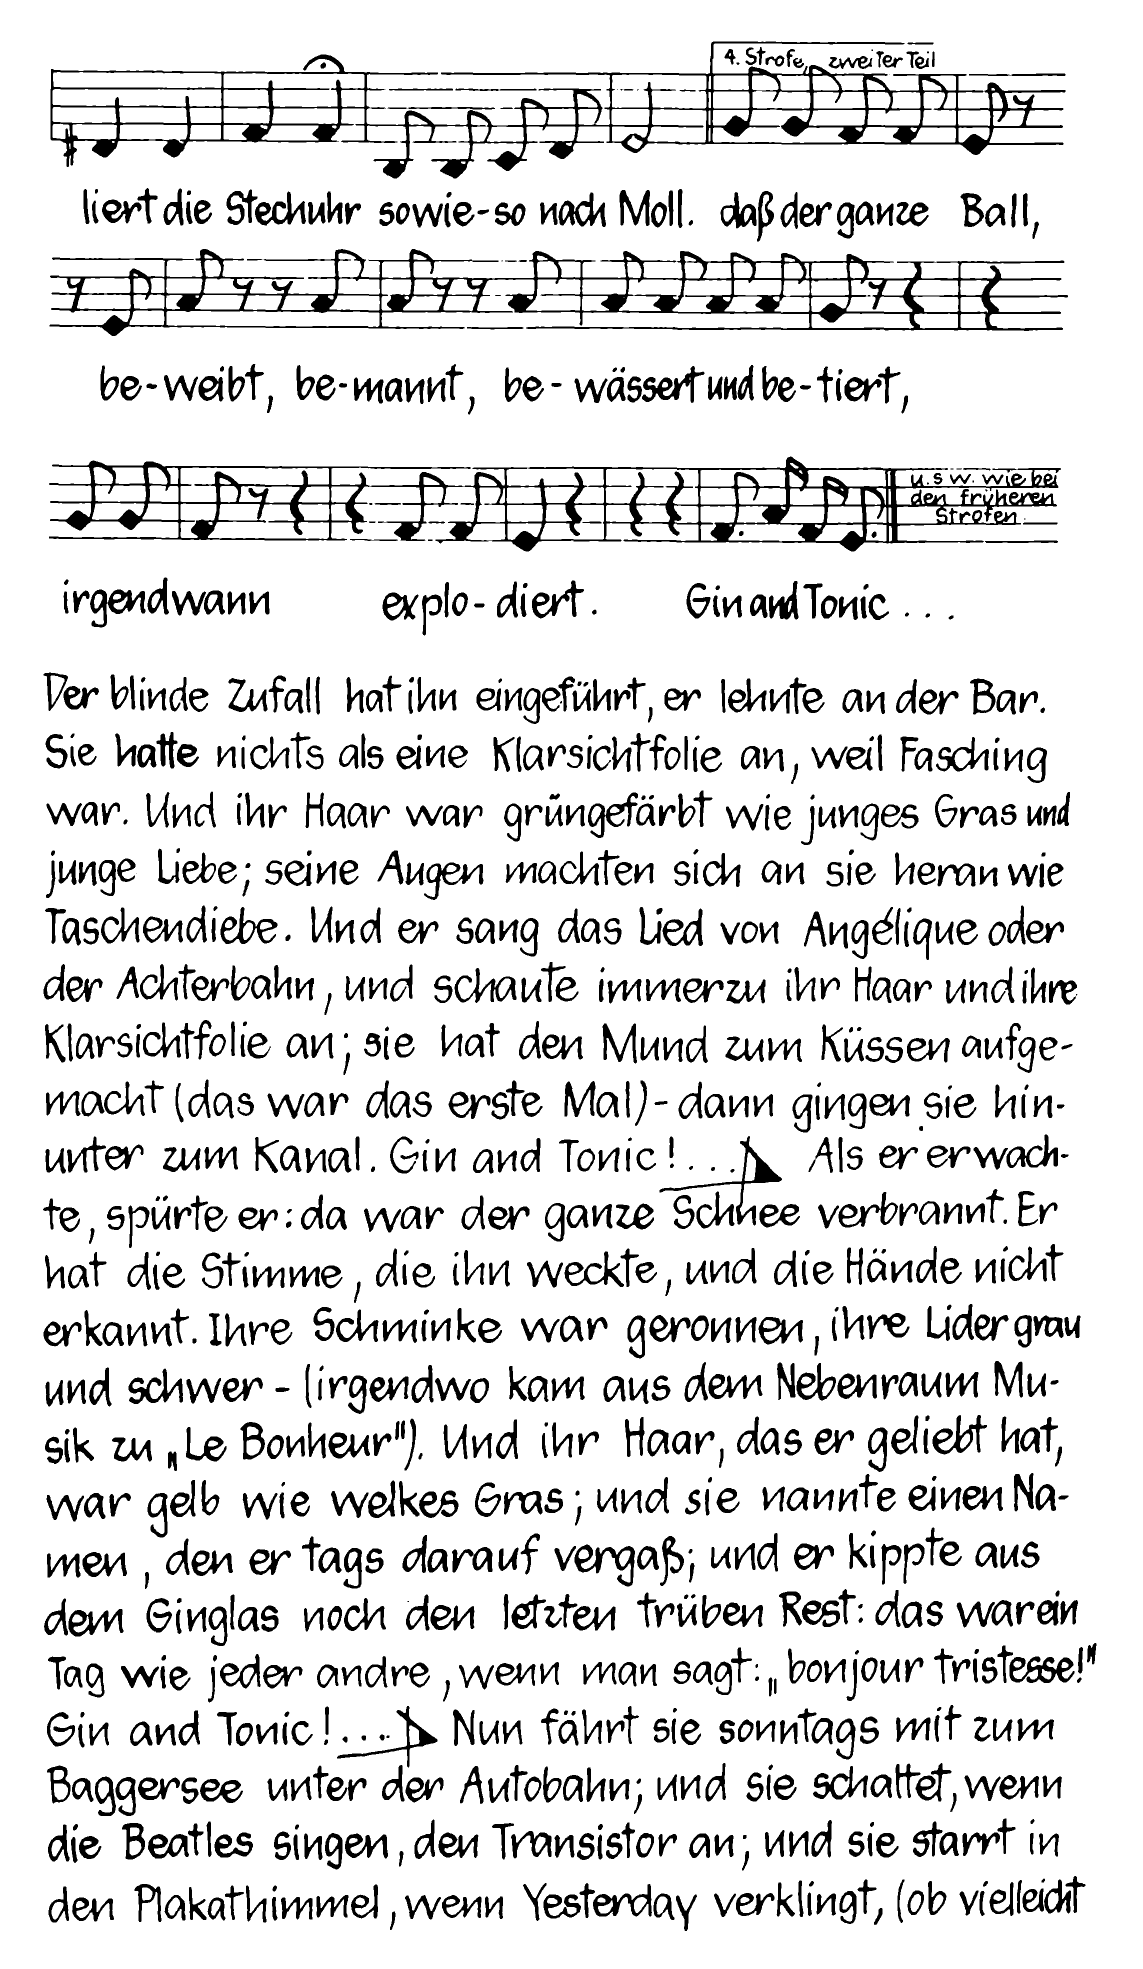 4. Strofe, zweiter Teil
liert die Stechuhr sowie-so nach Moll. daß der ganze Ball,
be-weibt, be-mannt, be-wässert und be-tiert,
u.s.w. wie bei
den früheren
Strofen.
irgendwann explo-diert. Gin and Tonic ...
Der blinde Zufall hat ihn eingeführt, er lehnte an der Bar.
Sie hatte nichts als eine Klarsichtfolie an, weil Fasching
war. Und ihr Haar war grüngefärbt wie junges Gras und
junge Liebe; seine Augen machten sich an sie heran wie
Taschendiebe. Und er sang das Lied von Angélique oder
der Achterbahn, und schaute immerzu ihr Haar und ihre
Klarsichtfolie an; sie hat den Mund zum Küssen aufge-
macht (das war das erste Mal)- dann gingen sie hin-
unter zum Kanal. Gin and Tonic!... Als er erwach-
te, spürte er: da war der ganze Schnee verbrannt. Er
hat die Stimme, die ihn weckte, und die Hände nicht
erkannt. Ihre Schminke war geronnen, ihre Lider grau
und schwer - (irgendwo kam aus dem Nebenraum Mu-
sik zu „Le Bonheur"). Und ihr Haar, das er geliebt hat,
war gelb wie welkes Gras; und sie nannte einen Na-
men, den er tags darauf vergaß; und er kippte aus
dem Ginglas noch den letzten trüben Rest: das war ein
Tag wie jeder andre, wenn man sagt: „bonjour tristesse!"
Gin and Tonic!... Nun fährt sie sonntags mit zum
Baggersee unter der Autobahn; und sie schattet, wenn
die Beatles singen, den Transistor an; und sie starrt in
den Plakathimmel, wenn Yesterday verklingt, (ob vielleicht